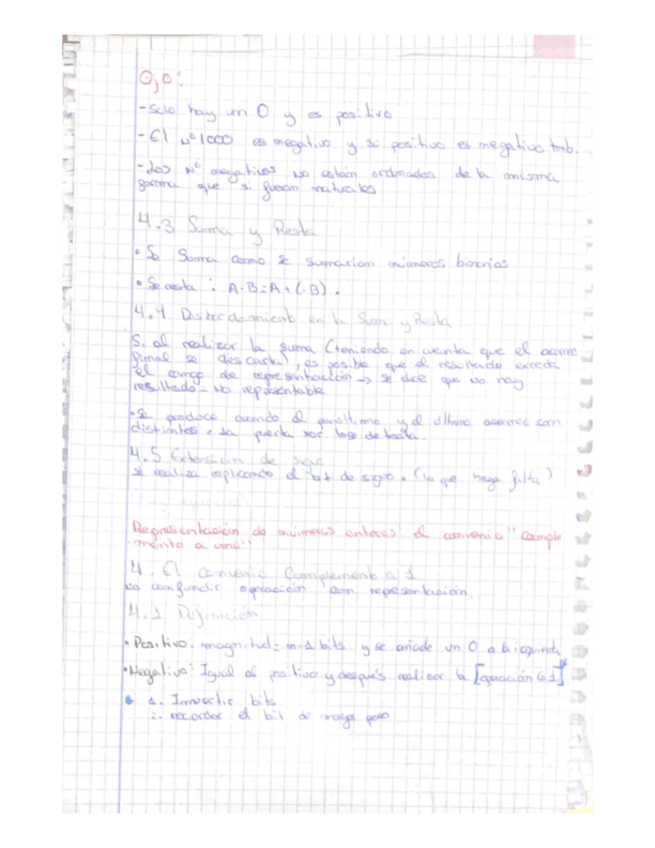 0,0:
- Solo hay un 0 y es positivo
- El Nº 1000 es negativo y su positivo es negativo tmb.
- Los Nº negativos no están ordenados de la misma
forma que si fueran naturales
4.3 Suma y Resta
• Se Suma como se sumarian números binarios
• Se resta: A-B=A+(-B).
4.4 Desbordamiento en la Suma y Resta
Si al realizar la suma (teniendo en cuenta que el acarreo
final se descarta), es posible que el resultado exceda
el rango de representación → se dice que no hay
resultado = no representable
• Se produce cuando el penúltimo y el último acarreo son
distintos. La puerta xor
4.5 Extensión de signo
se realiza replicando el bit de signo. (lo que haga falta)
Representación de números enteros: el convenio "Comple
mento a uno"
4. El convenio Complemento a 1
no confundir operación con representación.
4.1 Definición
• Positivo: magnitud = n-1 bits y se añade un 0 a la izquierda
• Negativo: Igual al positivo y después realizar la [operación Ca1]
1. Invertir bits
recordar el bit de mayor peso